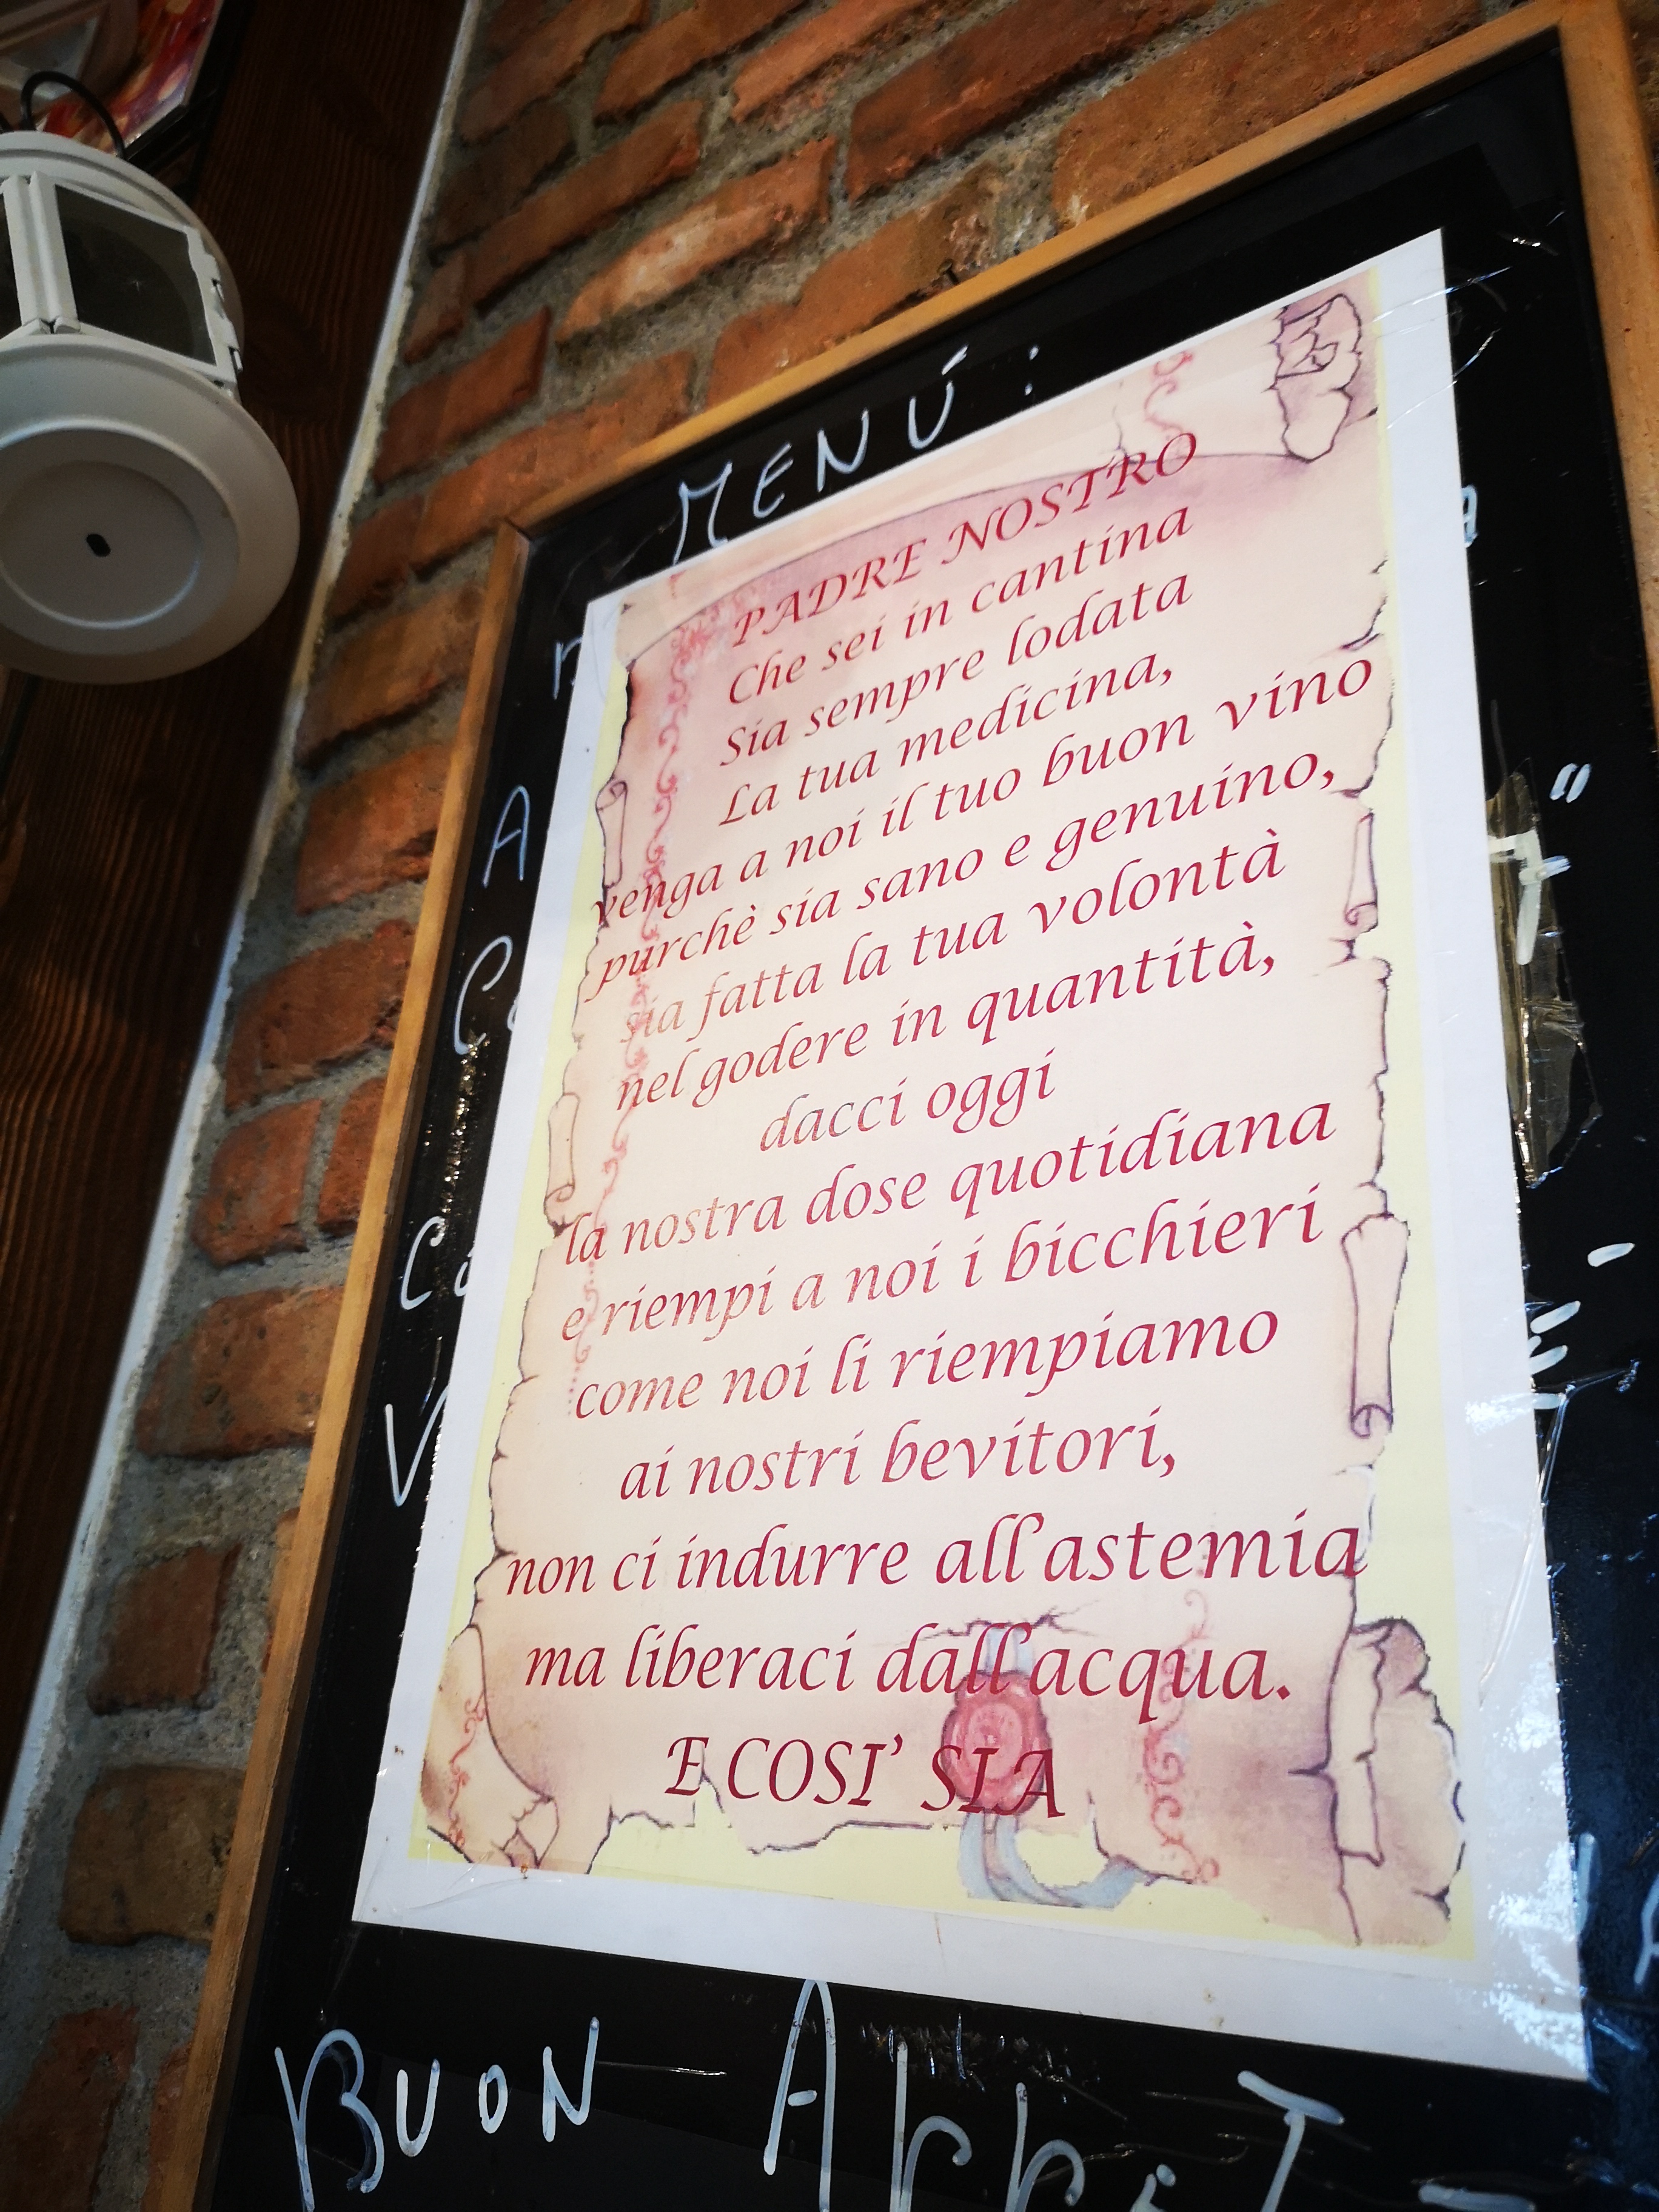 MENÚ:
PADRE NOSTRO
Che sei in cantina
Sia sempre lodata
La tua medicina,
venga a noi il tuo buon vino
purchè sia sano e genuino,
sia fatta la tua volontà
nel godere in quantità,
dacci oggi
la nostra dose quotidiana
e riempi a noi i bicchieri
come noi li riempiamo
ai nostri bevitori,
non ci indurre all'astemia
ma liberaci dall'acqua.
E COSI' SIA
BUON APPiT-